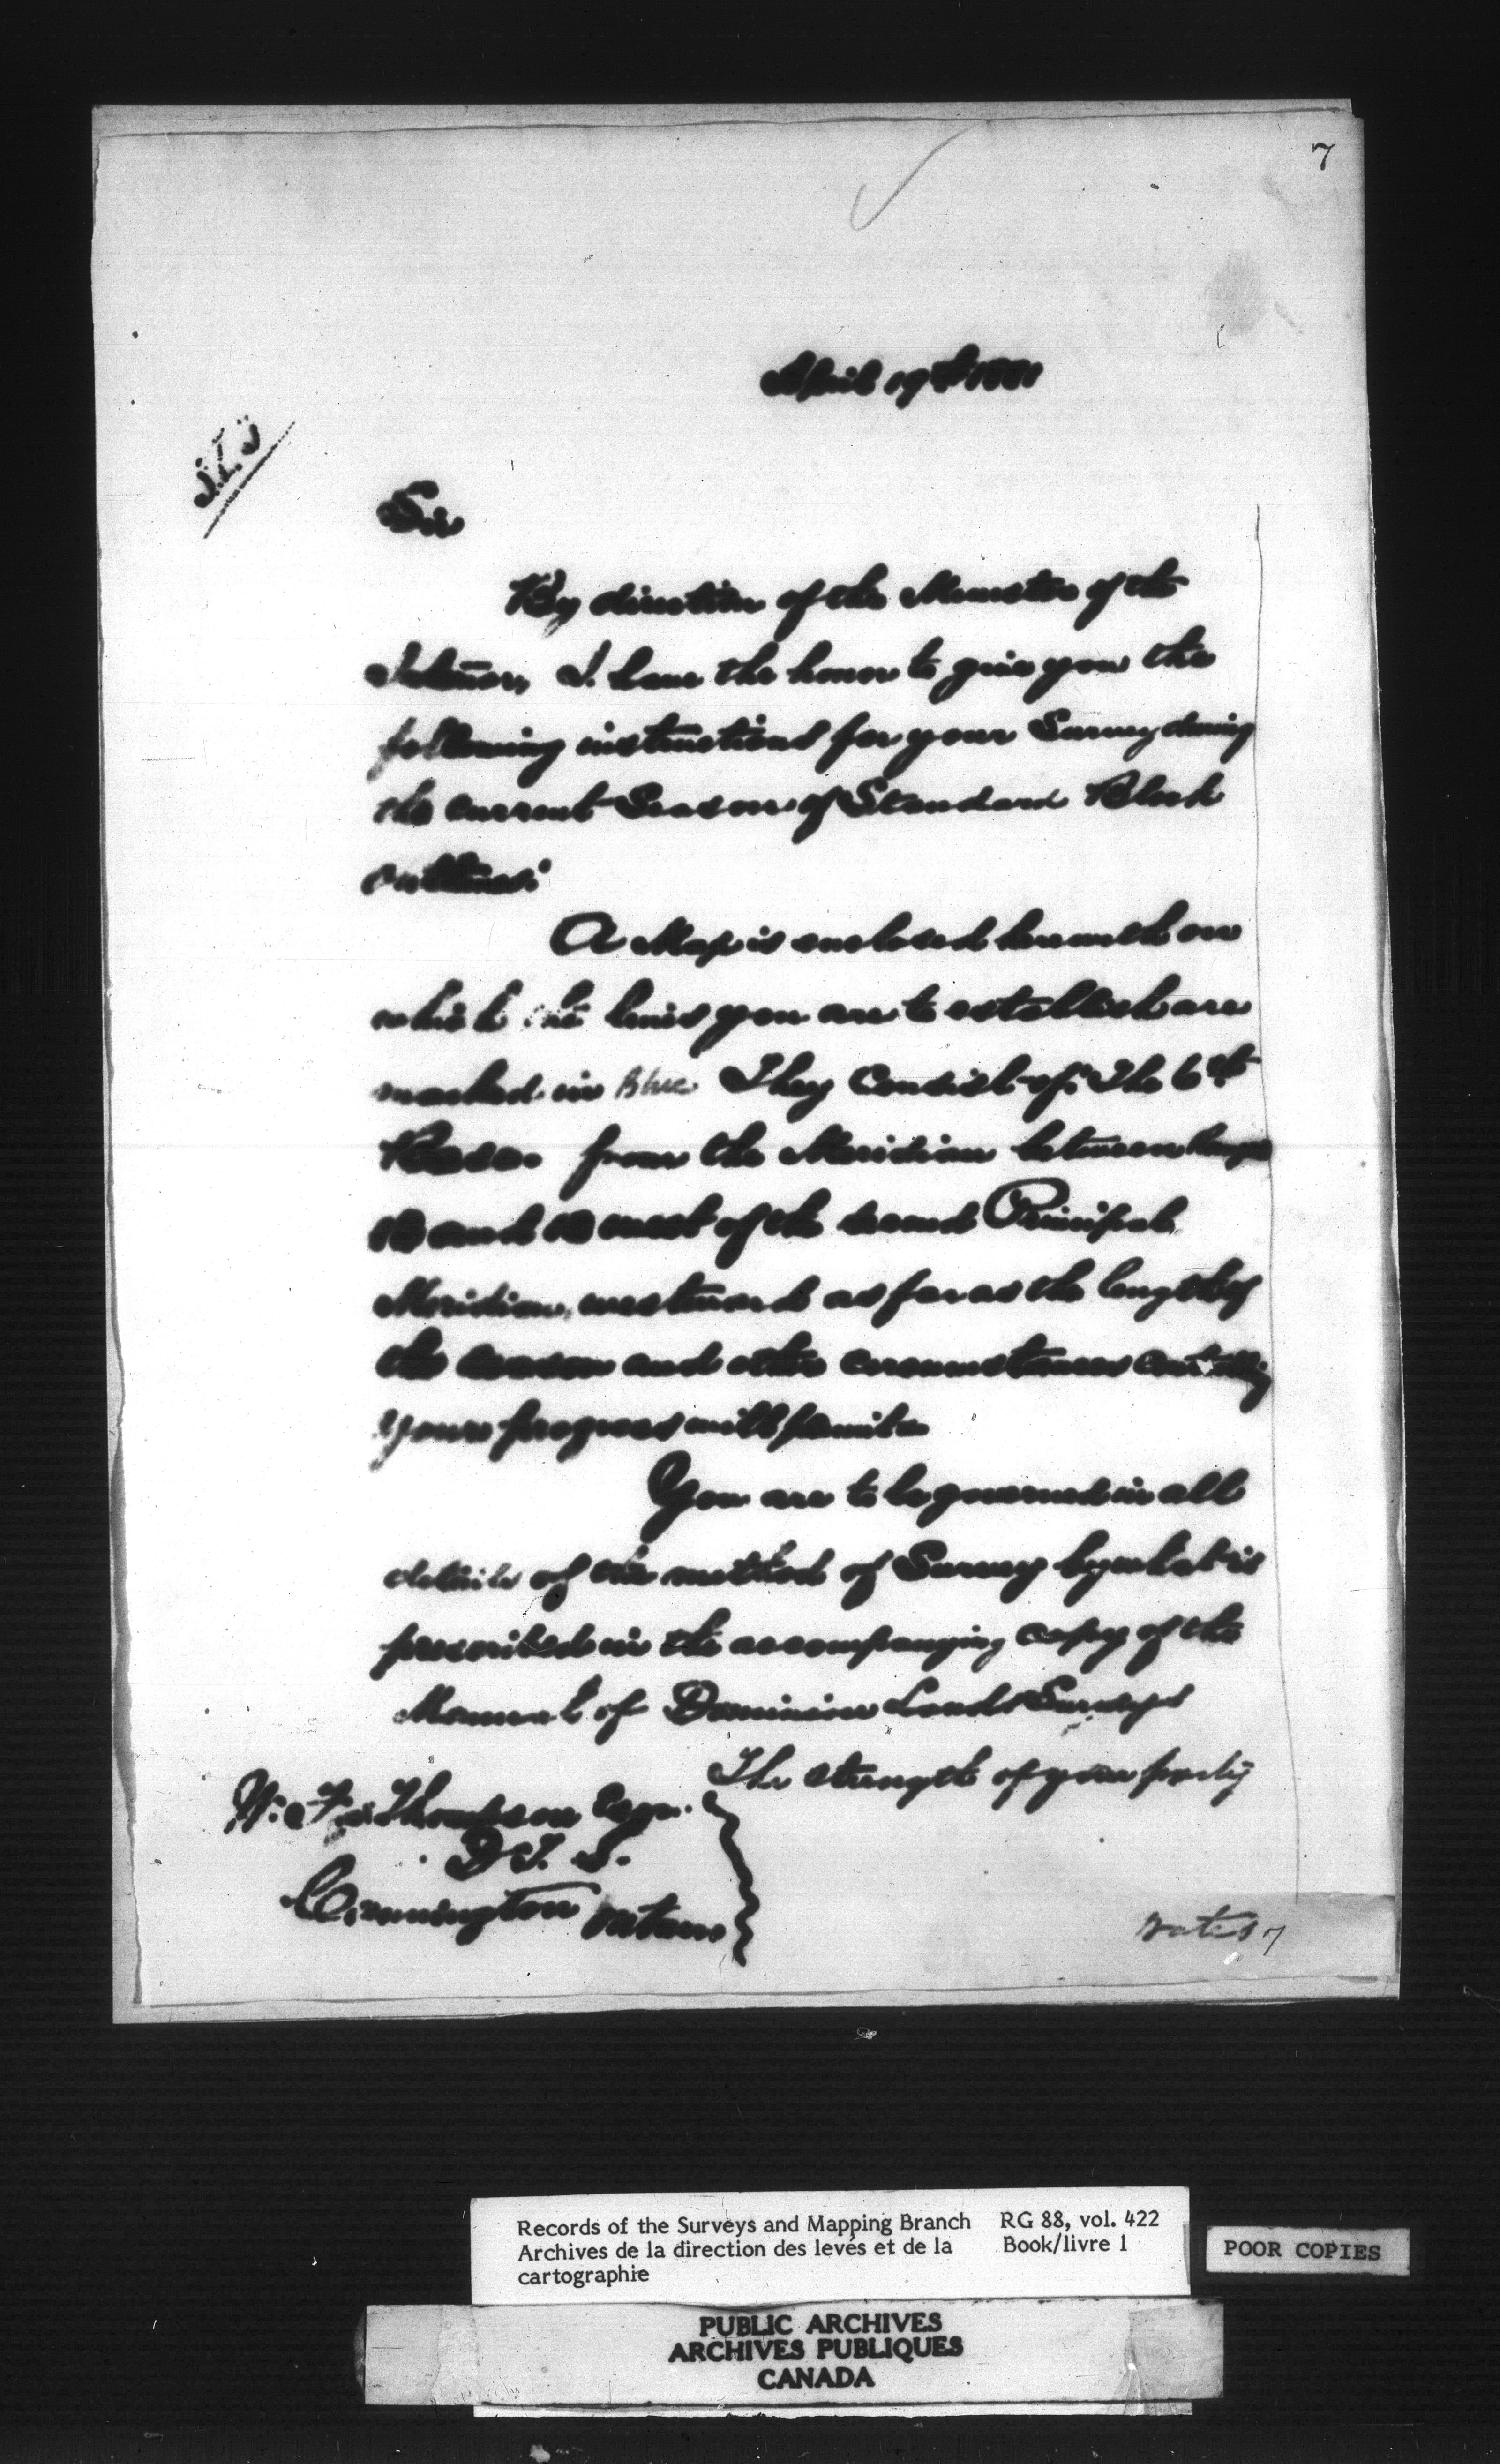 7
April 19th 1881
Sir
By direction of the Minister of the
Interior, I have the honor to give you the
following instructions for your Survey during
the current Season of Standard Block
outlines:
A Map is enclosed herewith on
which the lines you are to establish are
marked in Blue They Consist of: The 6th
Base from the Meridian between
and west of the second Principal
Meridian, westward as far as the length of
the season and other circumstances controlling
your progress will permit
You are to be governed in all
details of the method of Survey by what is
prescribed in the accompanying copy of the
Manual of Dominion Lands Surveys
The strength of your party
W. F. Thompson Esqr.
D.T.S.
Cannington Ontario
7
Records of the Surveys and Mapping Branch RG 88, vol. 422
Archives de la direction des levés et de la Book/livre 1
cartographie
POOR COPIES
PUBLIC ARCHIVES
ARCHIVES PUBLIQUES
CANADA